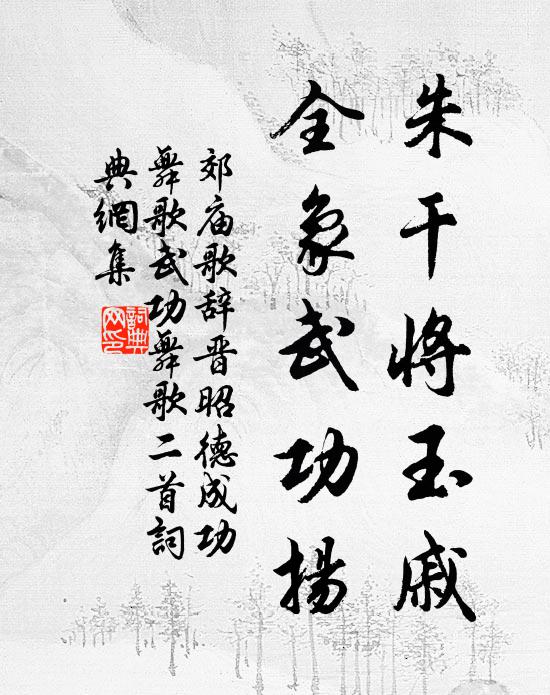 朱干将玉戚
全象武功揚
郊庙歌辞晋昭德成功
舞歌武功舞歌二首詞
典網集
詞典
网印